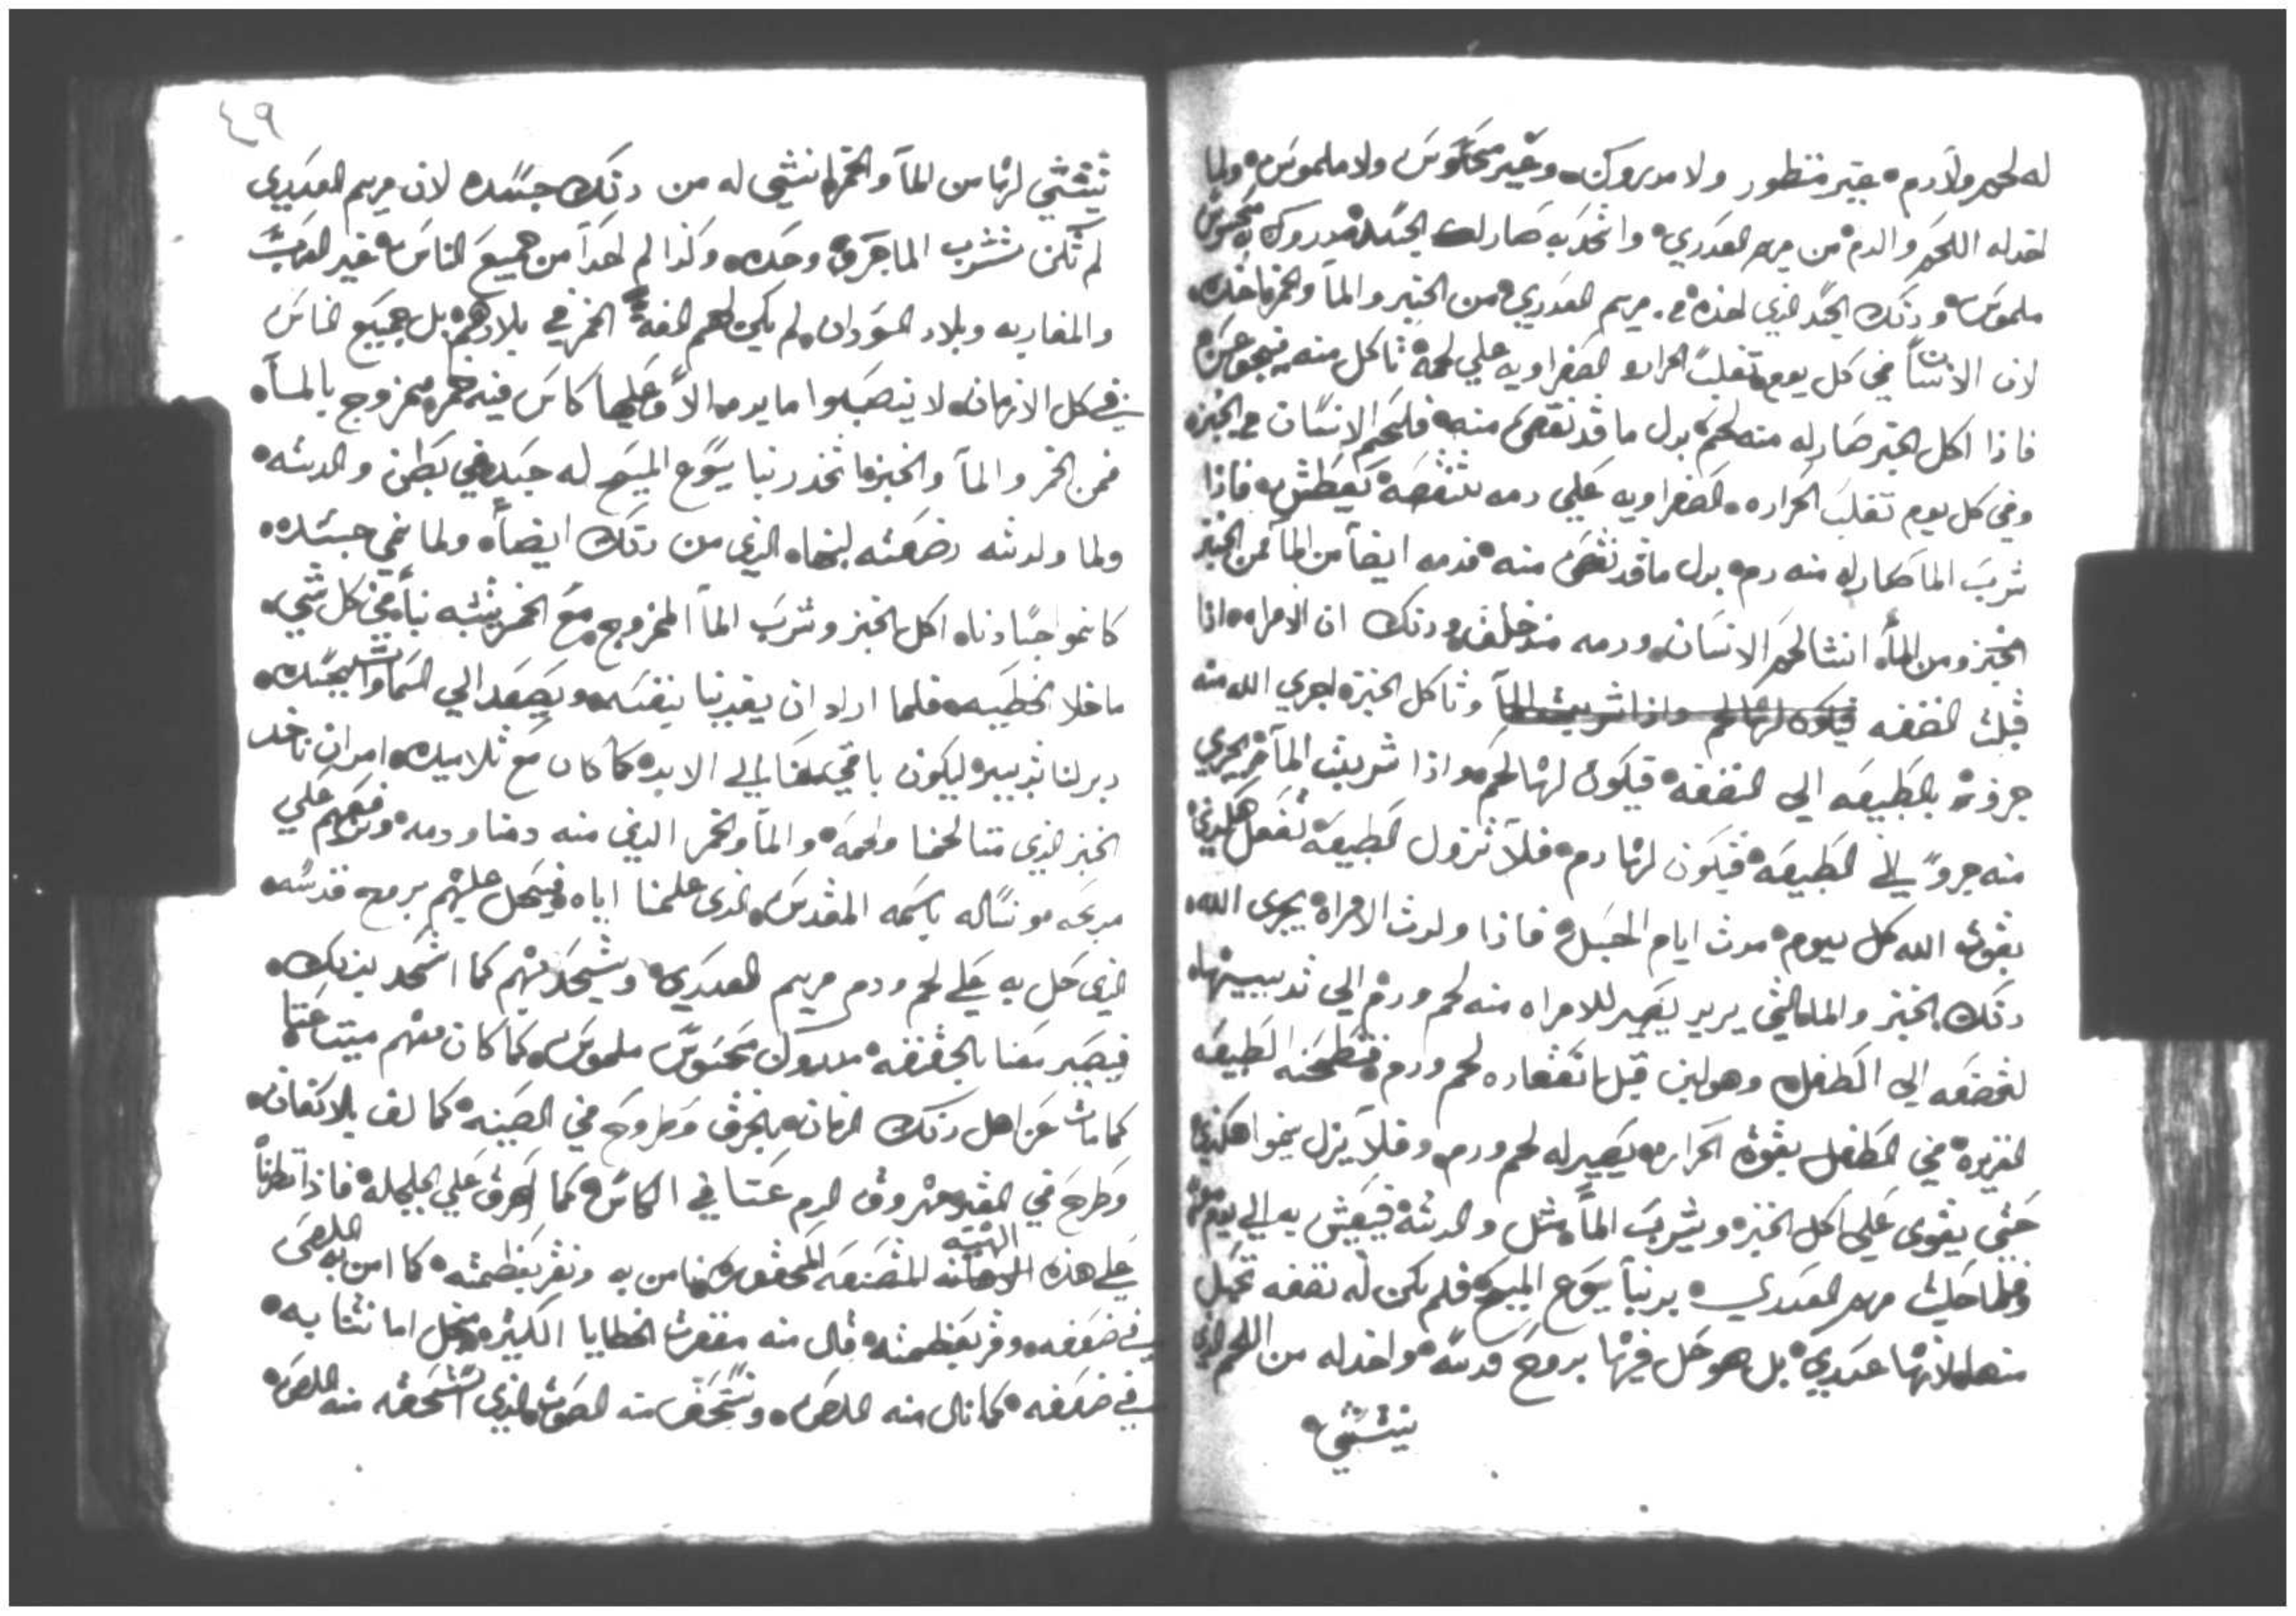 له لحم ولا دم بغير منظور ولا مدروك وغير محسوس ولا ملموس ولما
اخد له اللحم والدم من مريم العدري واتحد به صار له الجسد مدروك محسوس
ملموس ودلك الجسد الدي اخده من مريم العدري من الخبز والما والخمر ناخده
لان الانسان في كل يوم تغلب الحراره الصفراويه علي لحمه تاكل منه فيجوع
فادا اكل الخبز صار له منه لحم بدل ما قد نقص منه فلحم الانسان من الخبز
وفي كل يوم تغلب الحراره الصفراويه علي دمه تنقصه يعطش به فادا
شرب الما صار له منه دم بدل ما قد نقص منه فدمه ايضا من الما فمن الخبز
الخبز ومن الما انتشا لحم الانسان ودمه مند خلف ودلك ان الامراه ادا
قبلت النطفه وتاكل الخبز اجري الله منه
جزو بالطبيعه الي النطفه فيكون لها لحم وادا شربت الما يجري
منه جزو الي الطبيعه فيكون لها دم فلا تزول الطبيعه تفعل هكدي
بقوت الله كل يوم مدت ايام الحبل فادا ولدت الامراه يجري الله
دلك الخبز والما التي يريد يصير للامراه منه لحم ودم الي تدييها
لترضعه الي الطفل وهو لبن قبل انعقاده لحم ودم فتطبخه الطبيعه
الغريزه في الطفل بقوة الحراره يصير له لحم ودم وفلا يزل ينموا هكدي
حتي يقوي علي اكل الخبز ويشرب الما متل والدته فيعيش به الي يوم موته
فلما حبلت مريم العدري بربنا يسوع المسيح فلم يكن له نطفه تحبل
منها لانها عدري بل هو حل فيها بروح قدسه واخد له من اللحم الدي
ينتشي
٤٩
ينتشي لها من الما والخمر انتشي له من دلك جسده لان مريم العدري
لم تكن تشرب الما حرق وحده وكدا لم احدا من جميع الناس غير العرب
والمغاربه وبلاد السودان لم يكن لهم الفة الخمر في بلادهم بل جميع الناس
في كل الازمان لا ينصبوا مايده الا وعليها كاس فيه خمر ممزوج بالما
فمن الخمر والما والخبز اتخد ربنا يسوع المسيح له جسد في بطن والدته
ولما ولدته رضعته لبنها الدي من دلك ايضا ولما نمي جسده
كانموا اجسادنا اكل الخبز وشرب الما الممزوج مع الخمر يتشبه بنا في كل شي
ما خلا الخطيه فلما اراد ان يفدينا بنفسه ويصعد الي السما بجسده
دبر لنا تدبير ليكون باقي معنا الي الابد كما كان مع تلاميده امر ان ناخد
الخبز الدي منا لحمنا ولحمه والما والخمر الدي منه دمنا ودمه ونضعهم علي
مدبحه ونساله باسمه المقدس الدي علمنا اياه فيحل عليهم بروح قدسه
الدي حل به علي لحم ودم مريم العدري ويتحد بهم كما اتحد بدلك
فيصير معنا بالحقيقه مدروك محسوس ملموس كما كان معهم ميتا عنا
كما مات عن اهل دلك الزمان وطروح في الصينيه كما لف بالاكفان
وطرح في القبر مهروق الدم عنا في الكاس كما اهرق علي الجلجله فادا نظرنا
علي هده الهيه المتضعه المحقوره نامن به ونقر بعظمته كما امن به اللص
في ضعفه وقر بعظمته قال منه مغفرت الخطايا الكتيره من اجل امانتنا به
في ضعفه كما نال منه اللص ونستحق منه الصوت الدي استحقه منه اللص